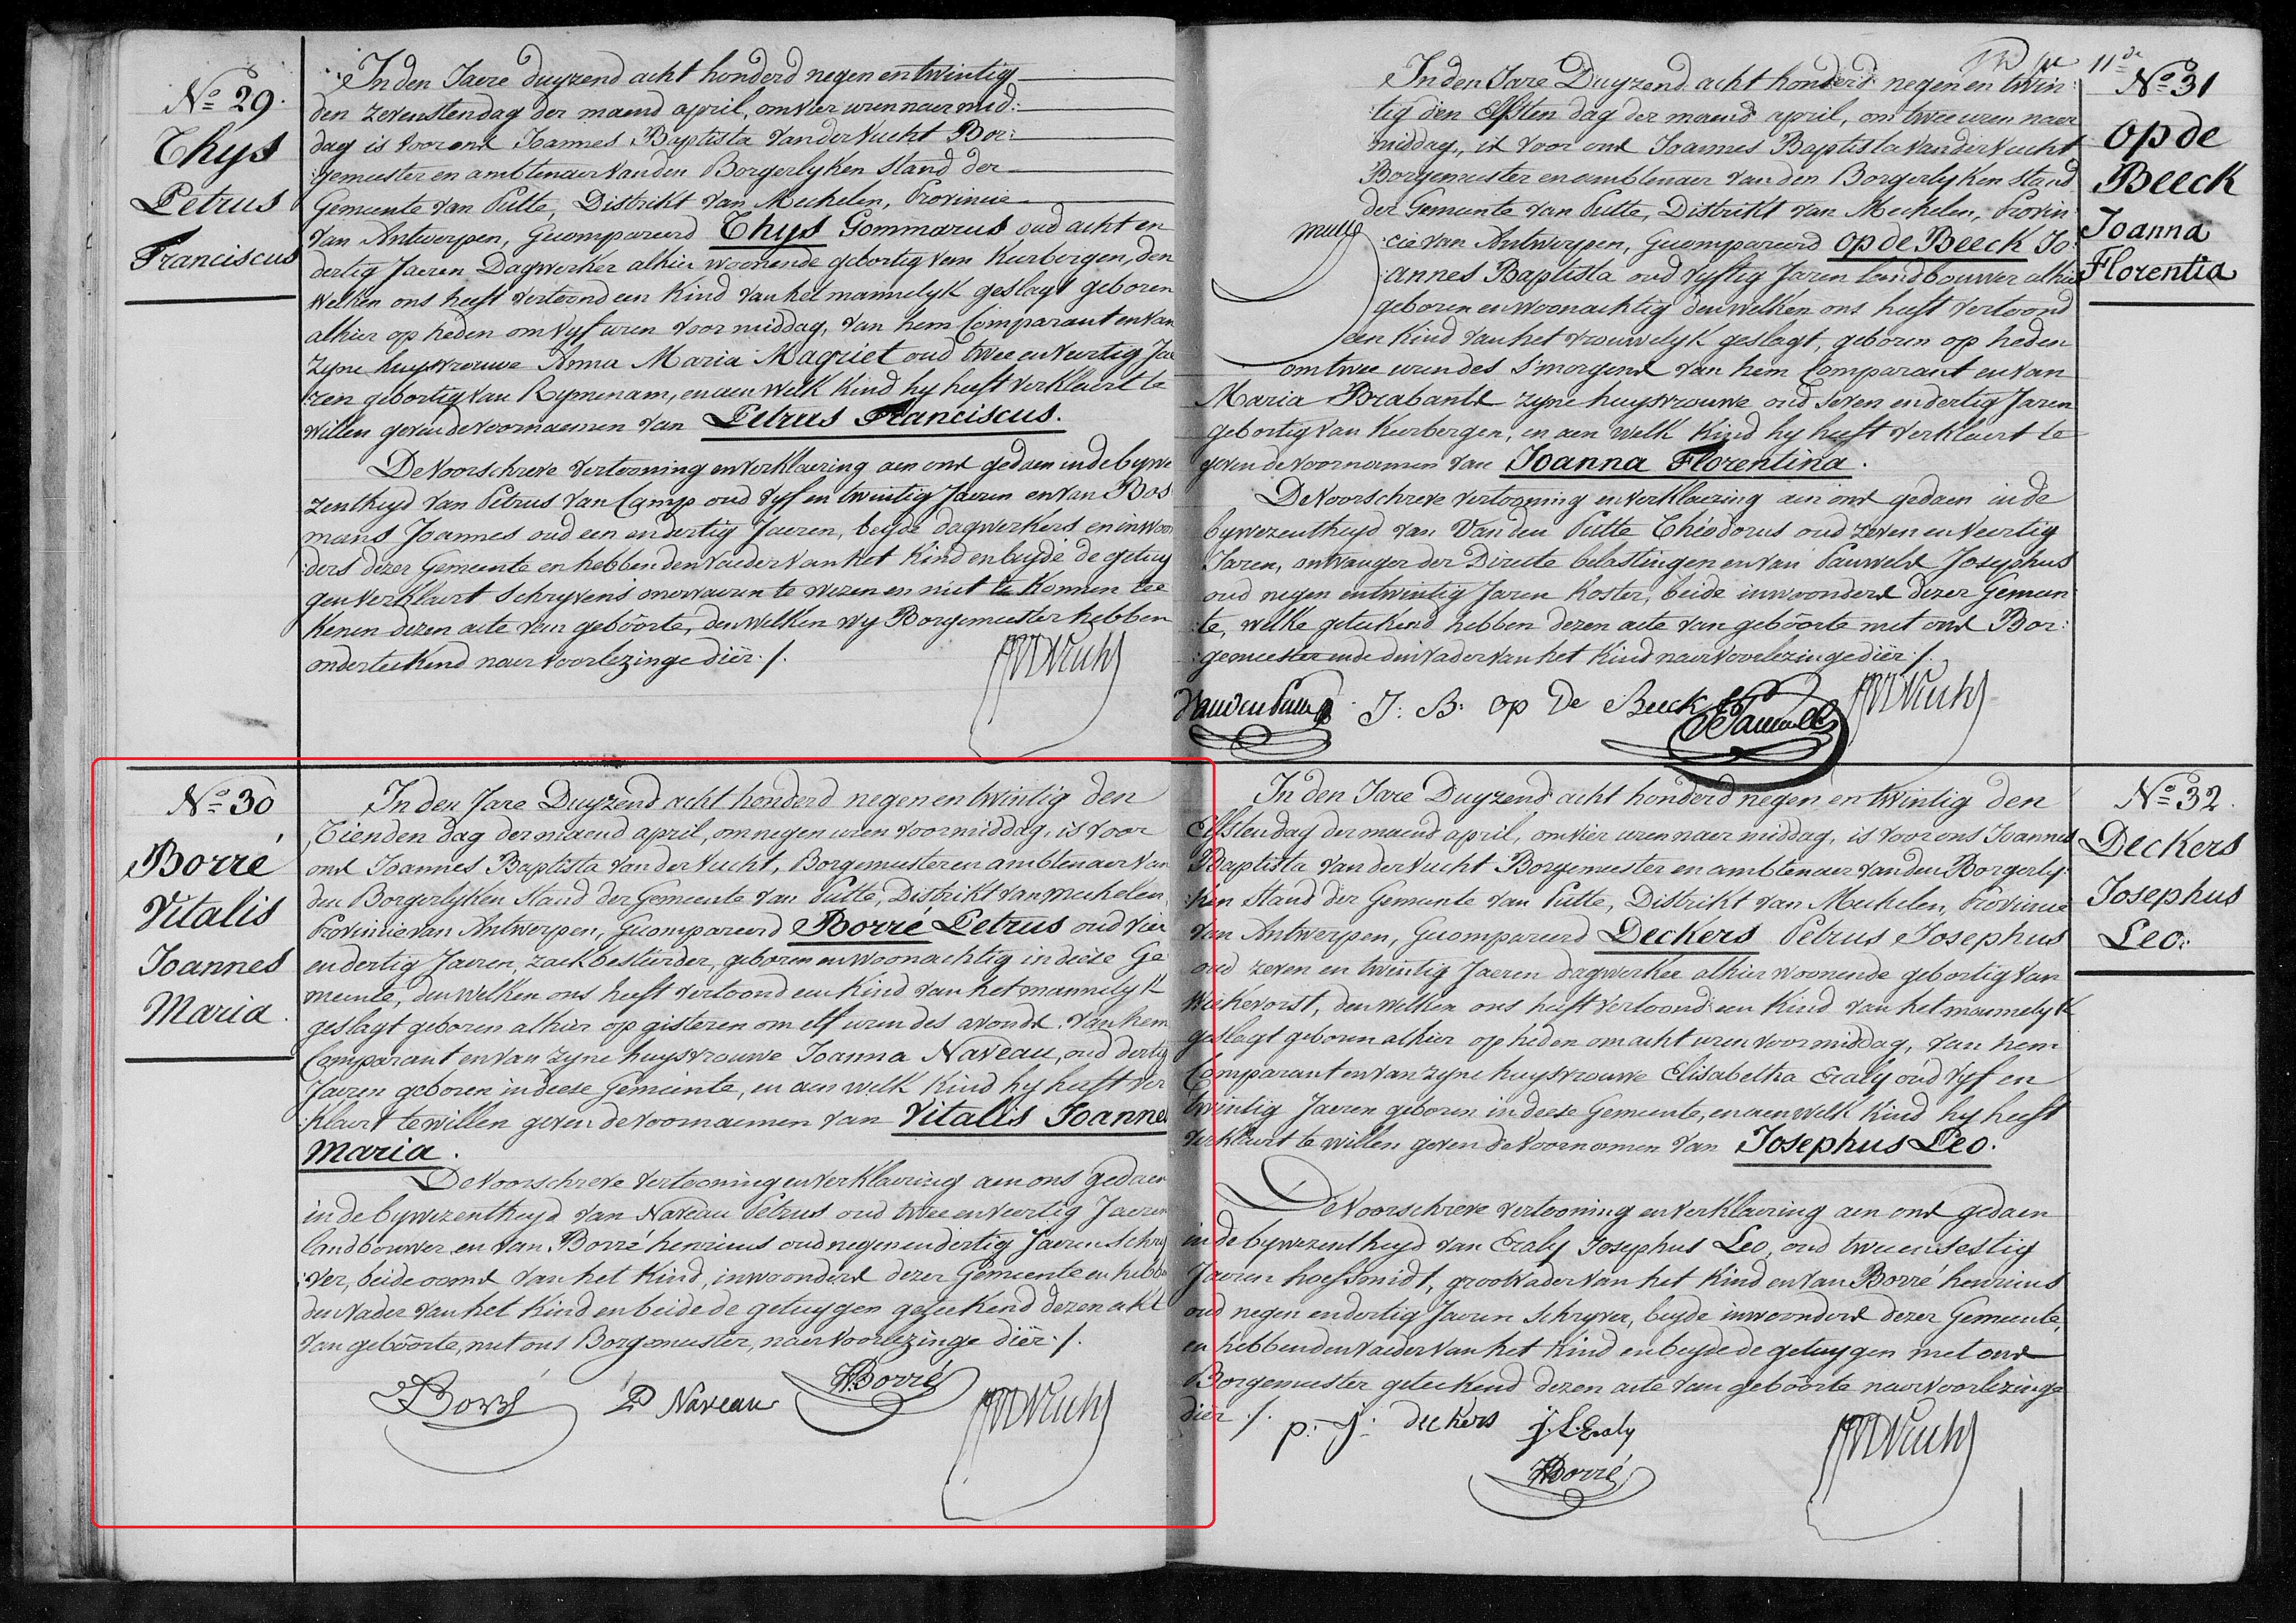 No 29.
Thys
Petrus
Franciscus
In den Jaere duyzend acht honderd negen en twintig
den zevensten dag der maend april, om vier uren naer mid:
dag is voor ons Joannes Baptista Van der Vucht Bor:
:gemeester en ambtenaer van den Borgerlyken Stand der
Gemeente van Putte, Distrikt van Mechelen, Provincie
Van Antwerpen, Gecompareerd Thys Gommarus oud acht en
dertig Jaeren Dagwerker alhier woonende gebortig van Keerbergen, den
welken ons heeft vertoond een kind van het mannelyk geslagt geboren
alhier op heden om vyf uren voor middag, van hem Comparant en van
zyne huysvrouwe Anna Maria Magriet oud twee en veertig Jae
:ren gebortig van Rymenam, en aen welk kind hy heeft verklaert te
willen geven de voornaemen van Petrus Franciscus.
De voorschreve vertooning en verklaering aen ons gedaen in de bywe
zentheyd van Petrus Van Camp oud vyf en twintig Jaeren en van Bos
mans Joannes oud een en dertig Jaeren, beyde dagwerkers en inwoon
:ders dezer Gemeente en hebben den vaeder van het kind en beyde de getuy
gen verklaert schryvens onervaeren te wezen en niet te konnen tee
kenen dezen acte van gebôorte, den welken wy Borgemeester hebben
onderteekend naer voorlezinge diër ./.
No 30
Borré
Vitalis
Joannes
Maria.
In den Jare Duyzend acht honderd negen en twintig den
Tienden dag der maend april, om negen uren voormiddag, is voor
ons Joannes Baptista Van der Vucht, Borgemeester en ambtenaer van
den Borgerlyken Stand der Gemeente van Putte, Distrikt van Mechelen,
Provincie van Antwerpen, Gecompareerd Borré Petrus oud vier
en dertig Jaeren, zaekbestierder, geboren en woonachtig in deeze Ge
meente, den welken ons heeft vertoond een kind van het mannelyk
geslagt geboren alhier op gisteren om elf uren des avonds. van hem
Comparant en van zyne huysvrouwe Joanna Naveau, oud dertig
Jaeren geboren in deeze Gemeinte, en aen welk kind hy heeft ver
:klaert te willen geven de voornaemen van Vitalis Joannes
Maria.
De voorschreve vertooning en verklaering aen ons gedaen
in de bywezentheyd van Naveau Petrus oud twee en veertig Jaeren
landbouwer en van Borré henricus oud negen en dertig Jaeren Schry
:ver, beide ooms van het kind, inwoonders dezer Gemeente en hebben
den vader van het kind en beide de getuygen geteekend dezen akt
van gebôorte, met ons Borgemeester, naer voorlezinge diër ./.
Borré P Naveau HBorré
11de
No 31
Op de
Beeck
Joanna
Florentia
In den Jare Duyzend acht honderd negen en twin:
:tig den Elfsten dag der maend april, om twee uren naer
middag, is voor ons Joannes Baptista Van der Vucht
Borgemeester en ambtenaer van den Borgerlyken Stand
der Gemeente van Putte, Distrikt van Mechelen, Provin
:cie van Antwerpen, Gecompareerd Op de Beeck Jo:
:annes Baptista oud vyftig Jaren landbouwer alhier
geboren en woonachtig den welken ons heeft vertoond
een kind van het vrouwelyk geslagt, geboren op heden
om twee uren des s'morgens van hem Comparant en van
Maria Brabants zyne huysvrouwe oud seven en dertig Jaren
gebortig van Keerbergen, en aen welk kind hy heeft verklaert te
geven de voornamen van Joanna Florentina.
De voorschreve vertooning en verklaering aen ons gedaen in de
bywezentheyd van Van den Putte Théodorus oud zeven en veertig
Jaren, ontvanger der Directe belastingen en van Pauwels Josephus
oud negen en twintig Jaren koster, beide inwoonders dezer Gemeen
:te, welke geteekend hebben dezen acte van gebôorte met ons Bor:
:gemeester ende den vader van het kind naer voorlezinge diër ./.
J: B: op De Beeck
No 32.
Deckers
Josephus
Leo.
In den Jare Duyzend acht honderd negen en twintig den
Elfsten dag der maend april, om vier uren naer middag, is voor ons Joannes
Baptista Van der Vucht Borgemeester en ambtenaer van den Borgerly:
:ken Stand der Gemeente van Putte, Distrikt van Mechelen, Provincie
van Antwerpen, Gecompareerd Deckers Petrus Josephus
oud zeven en twintig Jaeren dagwerker alhier woonende gebortig van
Wiekevorst, den welken ons heeft vertoond een kind van het mannelyk
geslagt geboren alhier op heden om acht uren voormiddag, van hem
Comparant en van zyne huysvrouwe Elisabetha Craly oud vyf en
twintig Jaeren geboren in deeze Gemeente, en aen welk kind hy heeft
verklaert te willen geven de voornomen van Josephus Leo.
De voorschreve vertooning en verklaering aen ons gedaen
in de bywezentheyd van Craly Josephus Leo, oud twee en sestig
Jaeren hoefsmidt, grootvader van het kind en van Borré henricus
oud negen en dertig Jaeren Schryver, beyde inwoonders dezer Gemeente,
en hebben den vaeder van het kind en beyde de getuygen met ons
Borgemeester geteekend dezen acte van gebôorte naer voorlezinge
diër ./. p: j: deckers j. L. Craly
HBorré